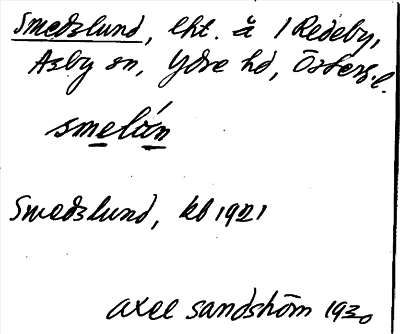 Smedslund, lht. å / Redeby,
Asby sn, Ydre hd, Österg.l.
smelún
Smedslund, kb 1921
Axel Sandström 1930